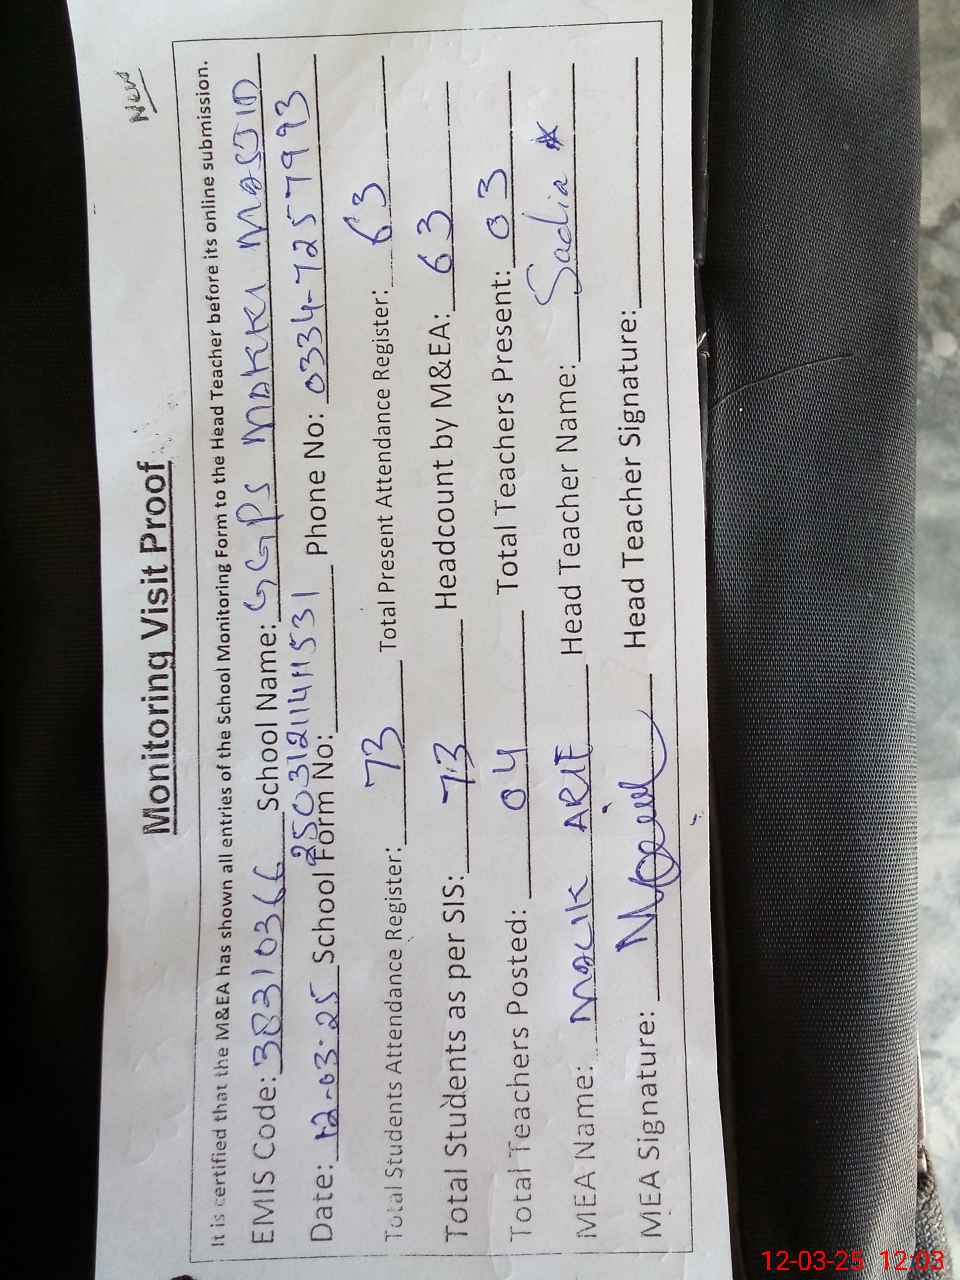 New
Monitoring Visit Proof
It is certified that the M&EA has shown all entries of the School Monitoring Form to the Head Teacher before its online submission.
EMIS Code: 38310366 School Name: GGPS MAKKI MASJID
Date: 12-03-25 School Form No: 25031211411531 Phone No: 0334-7257993
Total Students Attendance Register: 73 Total Present Attendance Register: 63
Total Students as per SIS: 73 Headcount by M&EA: 63
Total Teachers Posted: 04 Total Teachers Present: 03
MEA Name: MALIK ARIF Head Teacher Name: Sadia
MEA Signature: Head Teacher Signature:
12-03-25 12:03